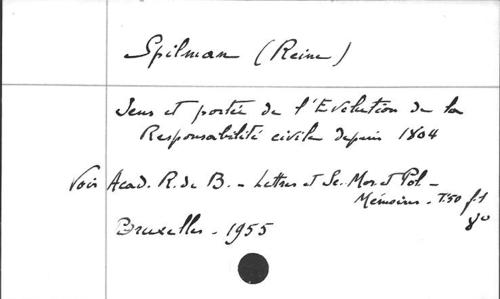 Spilman (Reine)
Sens et portée de l'Evolution de la
Responsabilité civile depuis 1804
Voir Acad. R. de B. - Lettres et Sc. Mor. et Pol -
Mémoires - T. 50 f. 1
8°
Bruxelles - 1955